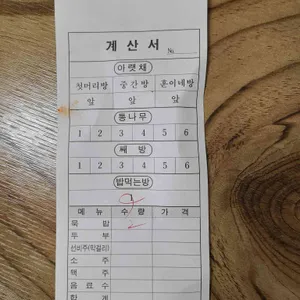 계산서
№
아랫채
첫머리방 중간방 훈이네방
앞 앞 앞
통나무
1 2 3 4 5 6
쩨방
1 2 3 4 5 6
밥먹는방
메뉴 수량 가격
묵밥 2
두부
선비주(막걸리)
소주
맥주
음료수
합계